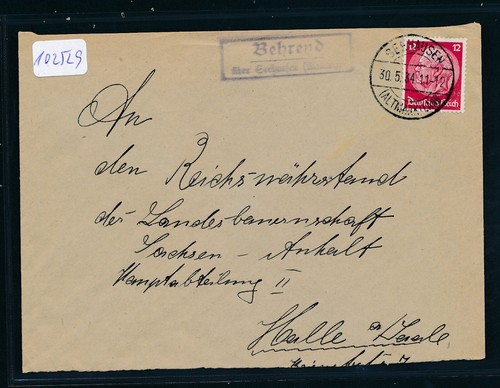 102529
Behrend
über Seehausen (Altmark)
SEEHAUSEN
30.5.34.11-12
(ALTMARK)
12 12
Deutsches Reich
An
den Reichsnährstand
des Landesbauernschaft
Sachsen - Anhalt
Hauptabteilung II
Halle a/Saale